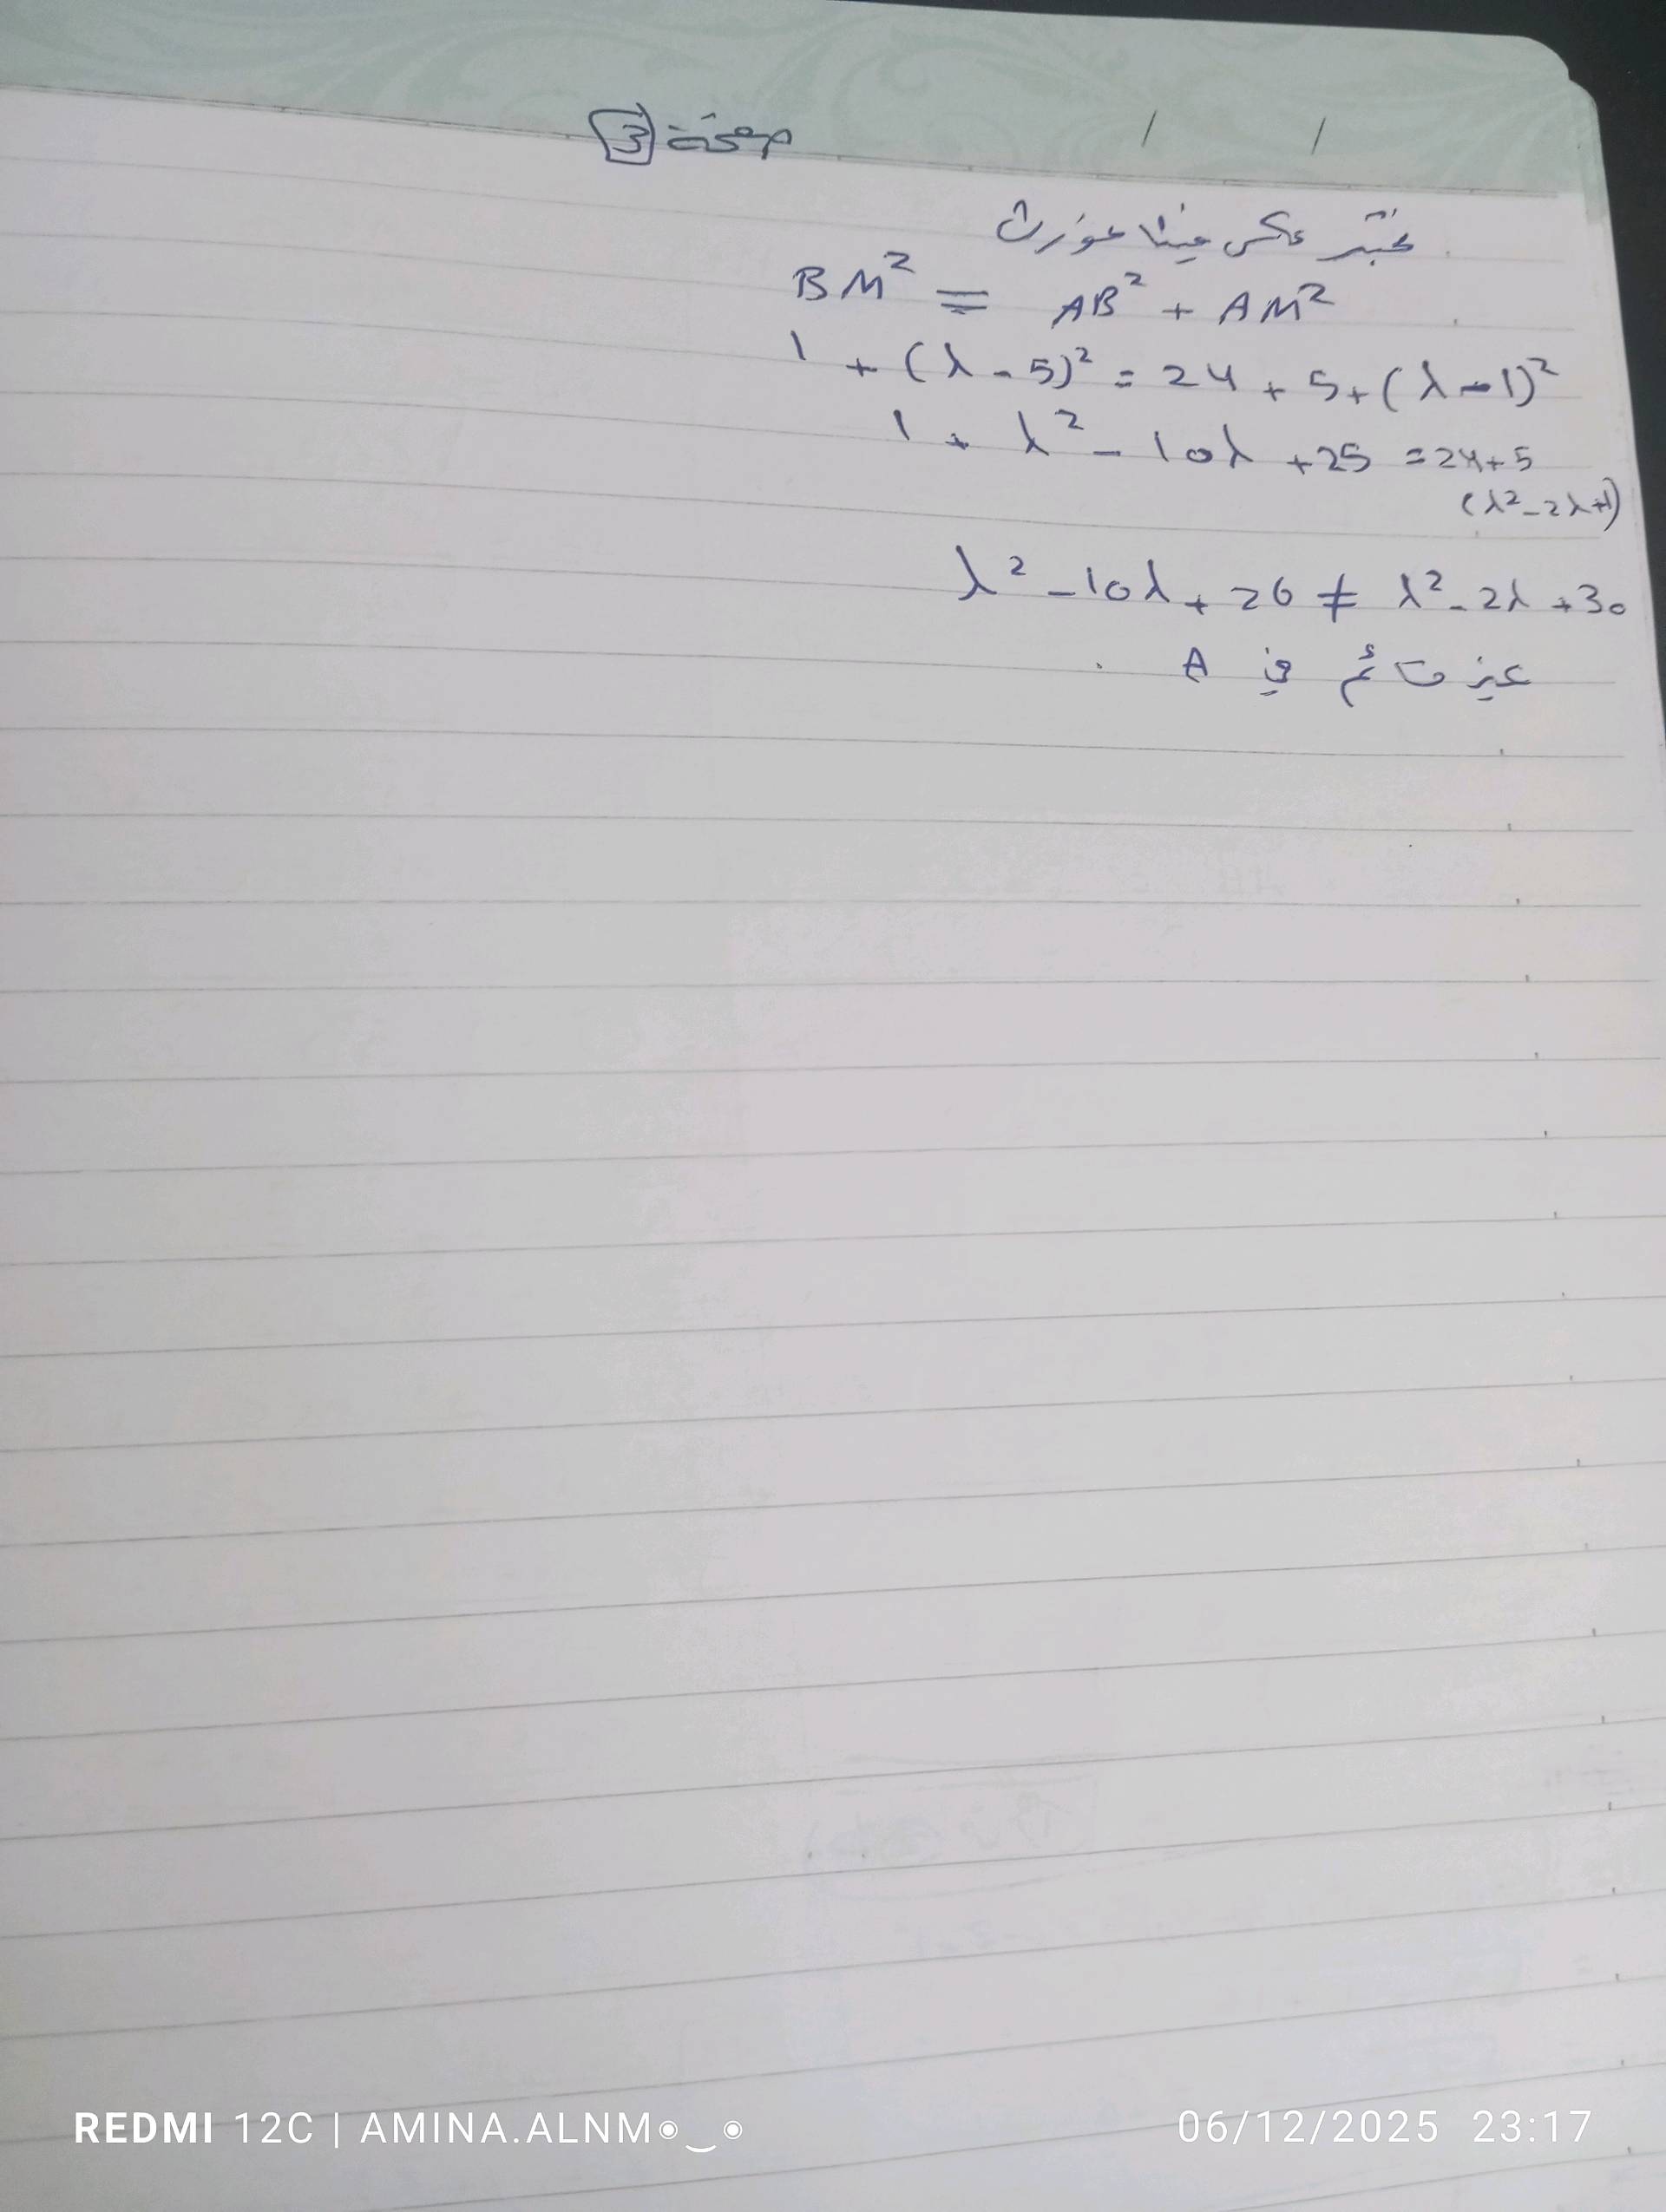 صفحة 3
/ /
نختبر عكس فيثاغورث
BM² = AB² + AM²
1 + (λ - 5)² = 24 + 5 + (λ - 1)²
1 + λ² - 10λ + 25 = 24 + 5
(λ² - 2λ + 1)
λ² - 10λ + 26 ≠ λ² - 2λ + 30
غير قائم في A
REDMI 12C | AMINA.ALNM◉‿◉
06/12/2025 23:17